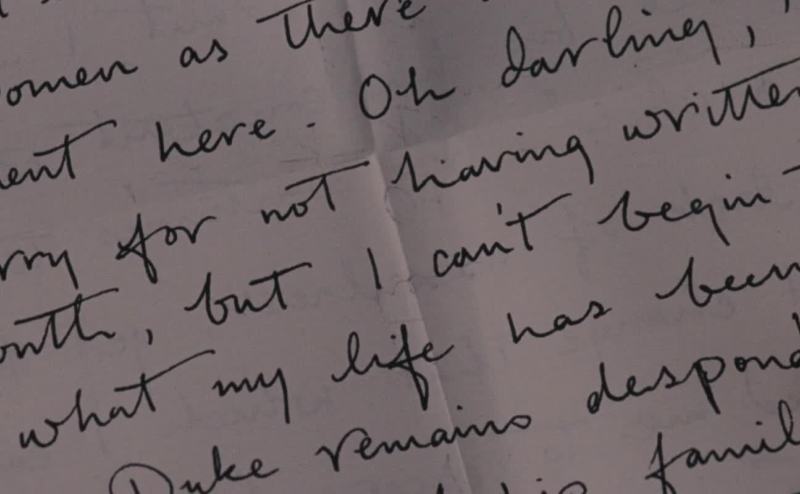 omen as there
ent here. Oh darling,
rry for not having written
onth, but I can't begin
what my life has been
Duke remains despond
his famil